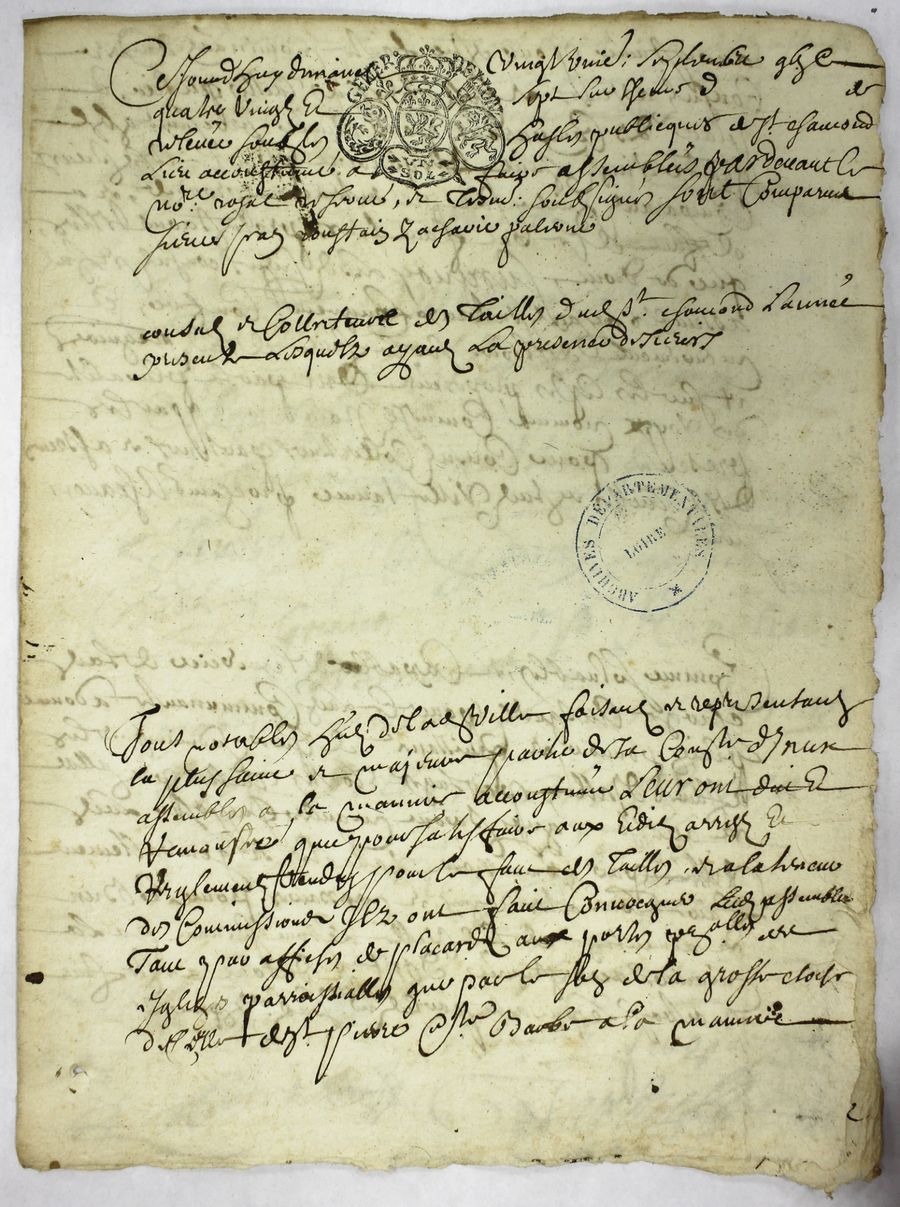 Cejourdhuy dimanche vingt uniesme septembre gbi c
quatre vingt et sept sur lheure d de
relevée soubz les halles publicques de st chamond
Lieu accoustumé a faire assemblées pardevant le
no.re royal reservé, et soubsignés sont Comparus
sieurs Zacharie palerne
GENER. DE LYON
VN SOL
consulz et Collecteurs des Tailles dud. St. chamond Lannée
presente Lesquelz ayant La presence de sieurs
ARCHIVES DEPARTEMENTALES
LOIRE
Tous notables hans de lad. Ville faisant et representant
la plus saine et majeure partie de la
assemblés a la maniere accoustumée Leur ont dit Et
remonstré que pour satisfaire aux Edits arrests Et
Reglements rendus pour le fait des Tailles et a la teneur
des Commissions Ilz ont fait Convocquer Lad. assemblée
Tant par affiches de placards aux portes des
Eglises parroissialles que par le son de la grosse cloche
de st pierre et ste Barbe a la maniere
2